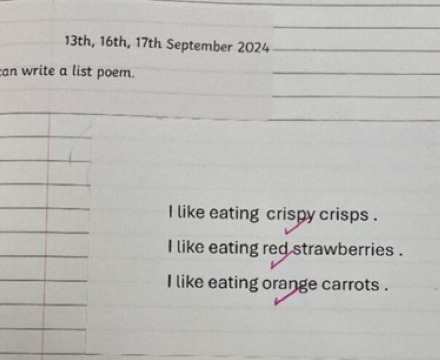 13th, 16th, 17th September 2024
can write a list poem.
I like eating crispy crisps .
I like eating red strawberries .
I like eating orange carrots .